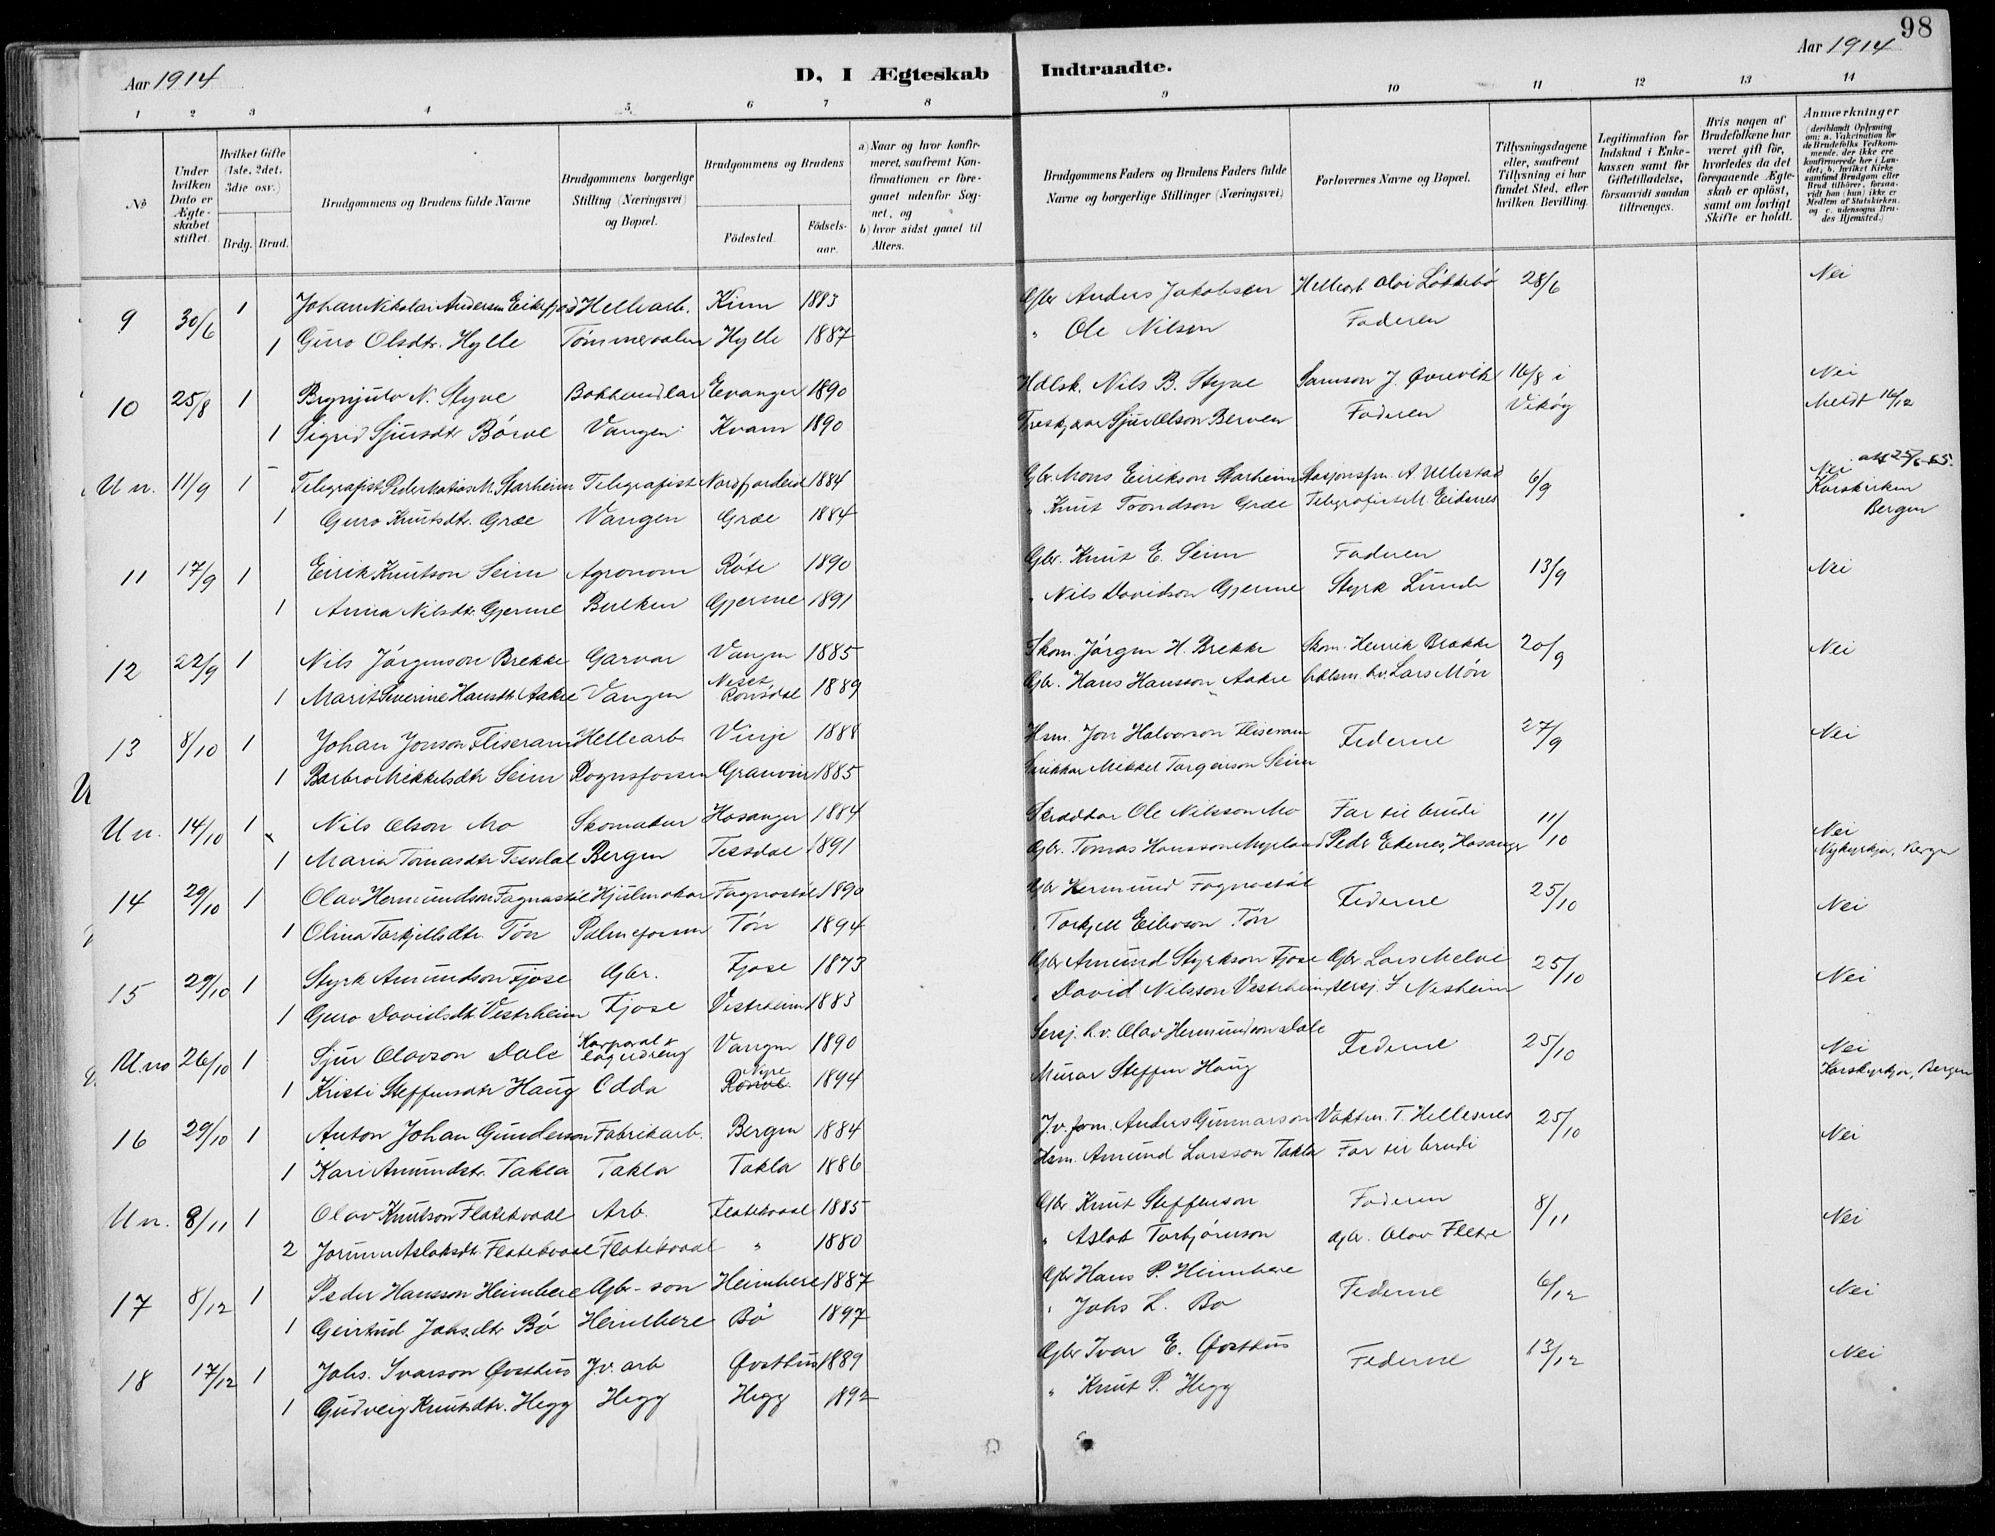 98
Aar 1914 D, I Ægteskab Indtraadte. Aar 1914
1 2 3 4 5 6 7 8 9 10 11 12 13 14
№
Under hvilken Dato er Ægteskabet stiftet.
Hvilket Gifte (1ste, 2det, 3die osv.)
Brdg. Brud.
Brudgommens og Brudens fulde Navne
Brudgommens borgerlige Stilling (Næringsvei) og Bopæl.
Brudgommens og Brudens
Födested. Födselsaar.
a) Naar og hvor konfirmeret, saafremt Konfirmationen er foregaaet udenfor Sognet, og
b) hvor sidst gaaet til Alters.
Brudgommens Faders og Brudens Faders fulde Navne og borgerlige Stillinger (Næringsvei)
Forlovernes Navne og Bopæl.
Tillysningsdagene eller, saafremt Tillysning ei har fundet Sted, efter hvilken Bevilling.
Legitimation for Indskud i Enkekassen samt for Giftetilladelse, forsaavidt saadan tiltrænges.
Hvis nogen af Brudefolkene har været gift før, hvorledes da det foregaaende Ægteskab er oplöst, samt om lovligt Skifte er holdt.
Anmærkninger (deriblandt Oplysning om: a. Vakcination for de Brudefolks Vedkommende, der ikke ere konfirmerede her i Landet; b. hvilket Kirkesamfund Brudgom eller Brud tilhörer, forsaavidt han (hun) ikke er Medlem af Statskirken, og c. udensogns Brudes Hjemsted.)
9 30/6 1 Johan Nikolai Andersen Eikefjord Hellearb. Kinn 1883 Gbr Anders Jakobsen Hellearb Olai Løkkebø 28/6 Nei
1 Guro Olsdtr. Hylle Tømmerdalen Hylle 1887 " Ole Nilson Faderen
10 25/8 1 Brynjulv N. Styve Evanger 1890 Hdlsk. Nils B. Styve Samson J. Øvrevik 16/8 i Nei
1 Sigrid Sjursdtr Børve Vangen Kvam 1890 Sjur Olson Berven Faderen Vikøy Meldt 16/12
U n. 11/9 1 Telegrafist Peder Matias M. Starheim Telegrafist Nordfjordeid 1884 Gbr. Mons Eirikson Starheim Stasjonsfm. A. Ullestad 6/9 Nei
1 Guro Knutsdtr. Græe Vangen Græe 1884 " Knut Trondson Græe Telegrafist M Eidnes Korskirken Bergen
11 17/9 1 Eirik Knutson Seim Agronom Røte 1890 Gbr. Knut E. Seim Faderen 13/9 Nei
1 Anna Nilsdtr. Gjerme Bulken Gjerme 1891 " Nils Davidson Gjerme Styrk Lunde
12 22/9 1 Nils Jørgenson Brekke Garvar Vangen 1885 Skom. Jørgen H. Brekke Skom. Henrik Brekke 20/9 Nei
1 Marit Severine Hansdtr Aakre Vangen Neset Romsdal 1889 Gbr. Hans Hansson Aakre Lars Møn
13 8/10 1 Johan Jonson Fliseram Hellearb. Vinje 1888 Hsm. Jon Halvorson Fliseram Federne 27/9 Nei
1 Barbro Mikkelsdtr Seim Rognsfossen Granvin 1885 Mikkel Torgeirson Seim
U n. 14/10 1 Nils Olson Mo Skomakar Hosanger 1884 Skræddar Ole Nilsson Mo Far til brudi 11/10 Nei
1 Maria Tomasdtr Tessdal Bergen Tessdal 1891 Gbr. Tomas Hansson Myrland Peder Eknes, Hosanger Nykyrkja, Bergen
14 29/10 1 Olav Hermundson Fagnastøl Hjulmakar Fagnastøl 1890 Gbr Hermund Fagnastøl Federne 25/10 Nei
1 Olina Torkjellsdtr. Tøn Palmefossen Tøn 1894 " Torkjell Eilevson Tøn
15 29/10 1 Styrk Amundson Fjose Gbr. Fjose 1873 Gbr Amund Styrkson Fjose Gbr. Lars Melve 25/10 Nei
1 Guro Davidsdtr Vestrheim Fjose Vestrheim 1883 " David Nilsson Vestrheim Sersj. S Nesheim
U.no 26/10 1 Sjur Olavson Dale Korporal & Vangen 1890 Sersj. h.v. Olav Hermundson Dale Federne 25/10 Nei
1 Kristi Steffensdtr Haug Odda 1894 Murar Steffen Haug Korskyrkja, Bergen
16 29/10 1 Anton Johan Gunderson Fabrikarb. Bergen 1884 J.v. form. Anders Gunnarson Vaktm. T. Hellesnes 25/10 Nei
1 Kari Amundsdtr. Takla Takla Takla 1886 Hsm. Amund Larsson Takla Far til brudi
U n. 8/11 1 Olav Knutson Flatekvaal Arb. Flatekvaal 1885 Gbr Knut Steffenson Faderen 8/11 Nei
2 Jorunn Aslaksdtr. Flatekvaal Flatekvaal " 1880 " Aslak Torbjørnson Gbr. Olav Fletre
17 8/12 1 Peder Hansson Heimbere Gbr-son Heimbere 1887 Gbr Hans P. Heimbere Federne 6/12 Nei
1 Geirtrud Johs.dtr Bø Heimbere Bø 1897 " Johs L. Bø
18 17/12 1 Johs. Ivarson Øvsthus J.v. arb Øvsthus 1889 Gbr Ivar E. Øvsthus Federne 13/12 Nei
1 Gudveig Knutsdtr. Hegg Hegg Hegg 1892 " Knut P. Hegg